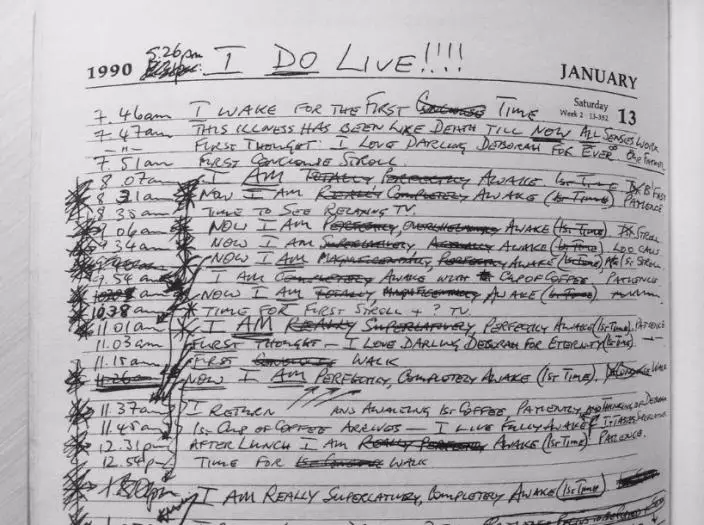 1990 5.26pm I DO LIVE!!!! JANUARY
Saturday 13
Week 2 · 13-352
7.46am I WAKE FOR THE FIRST TIME
7.47am THIS ILLNESS HAS BEEN LIKE DEATH TILL NOW ALL SENSES WORK
-"- FIRST THOUGHT: I LOVE DARLING DEBORAH FOR EVER
7.51am FIRST STROLL.
8.07am I AM TOTALLY PERFECTLY AWAKE. 1ST TIME
8.31am NOW I AM REALLY COMPLETELY AWAKE (1ST TIME) PATIENCE
8.35am TIME TO SEE RELAXING TV.
9.06am NOW I AM PERFECTLY, OVERWHELMINGLY AWAKE (1ST TIME) STROLL
9.34am NOW I AM SUPERLATIVELY ACTUALLY AWAKE (1ST TIME) LOO CALL
NOW I AM MAGNIFICENTLY, PERFECTLY AWAKE (1ST TIME) STROLL
9.54am I AM COMPLETELY AWAKE WITH CUP OF COFFEE PATIENCE.
am NOW I AM TOTALLY, MAGNIFICENTLY AWAKE (1ST TIME)
10.38am TIME FOR FIRST STROLL + ? TV.
11.01am I AM REALLY SUPERLATIVELY, PERFECTLY AWAKE (1ST TIME). PATIENCE
11.03am FIRST THOUGHT – I LOVE DARLING DEBORAH FOR ETERNITY (1ST TIME)
11.15am FIRST WALK
11.26am NOW I AM PERFECTLY, COMPLETELY AWAKE (1ST TIME).
11.37am I RETURN AND AWAITING 1ST COFFEE, PATIENTLY, AND THINKING OF DEBORAH
11.45am 1ST CUP OF COFFEE ARRIVES – I LIVE FULLY AWAKE
12.31pm AFTER LUNCH I AM REALLY PERFECTLY AWAKE (1ST TIME) PATIENCE.
12.54pm TIME FOR WALK
I AM REALLY SUPERLATIVELY, COMPLETELY AWAKE (1ST TIME)